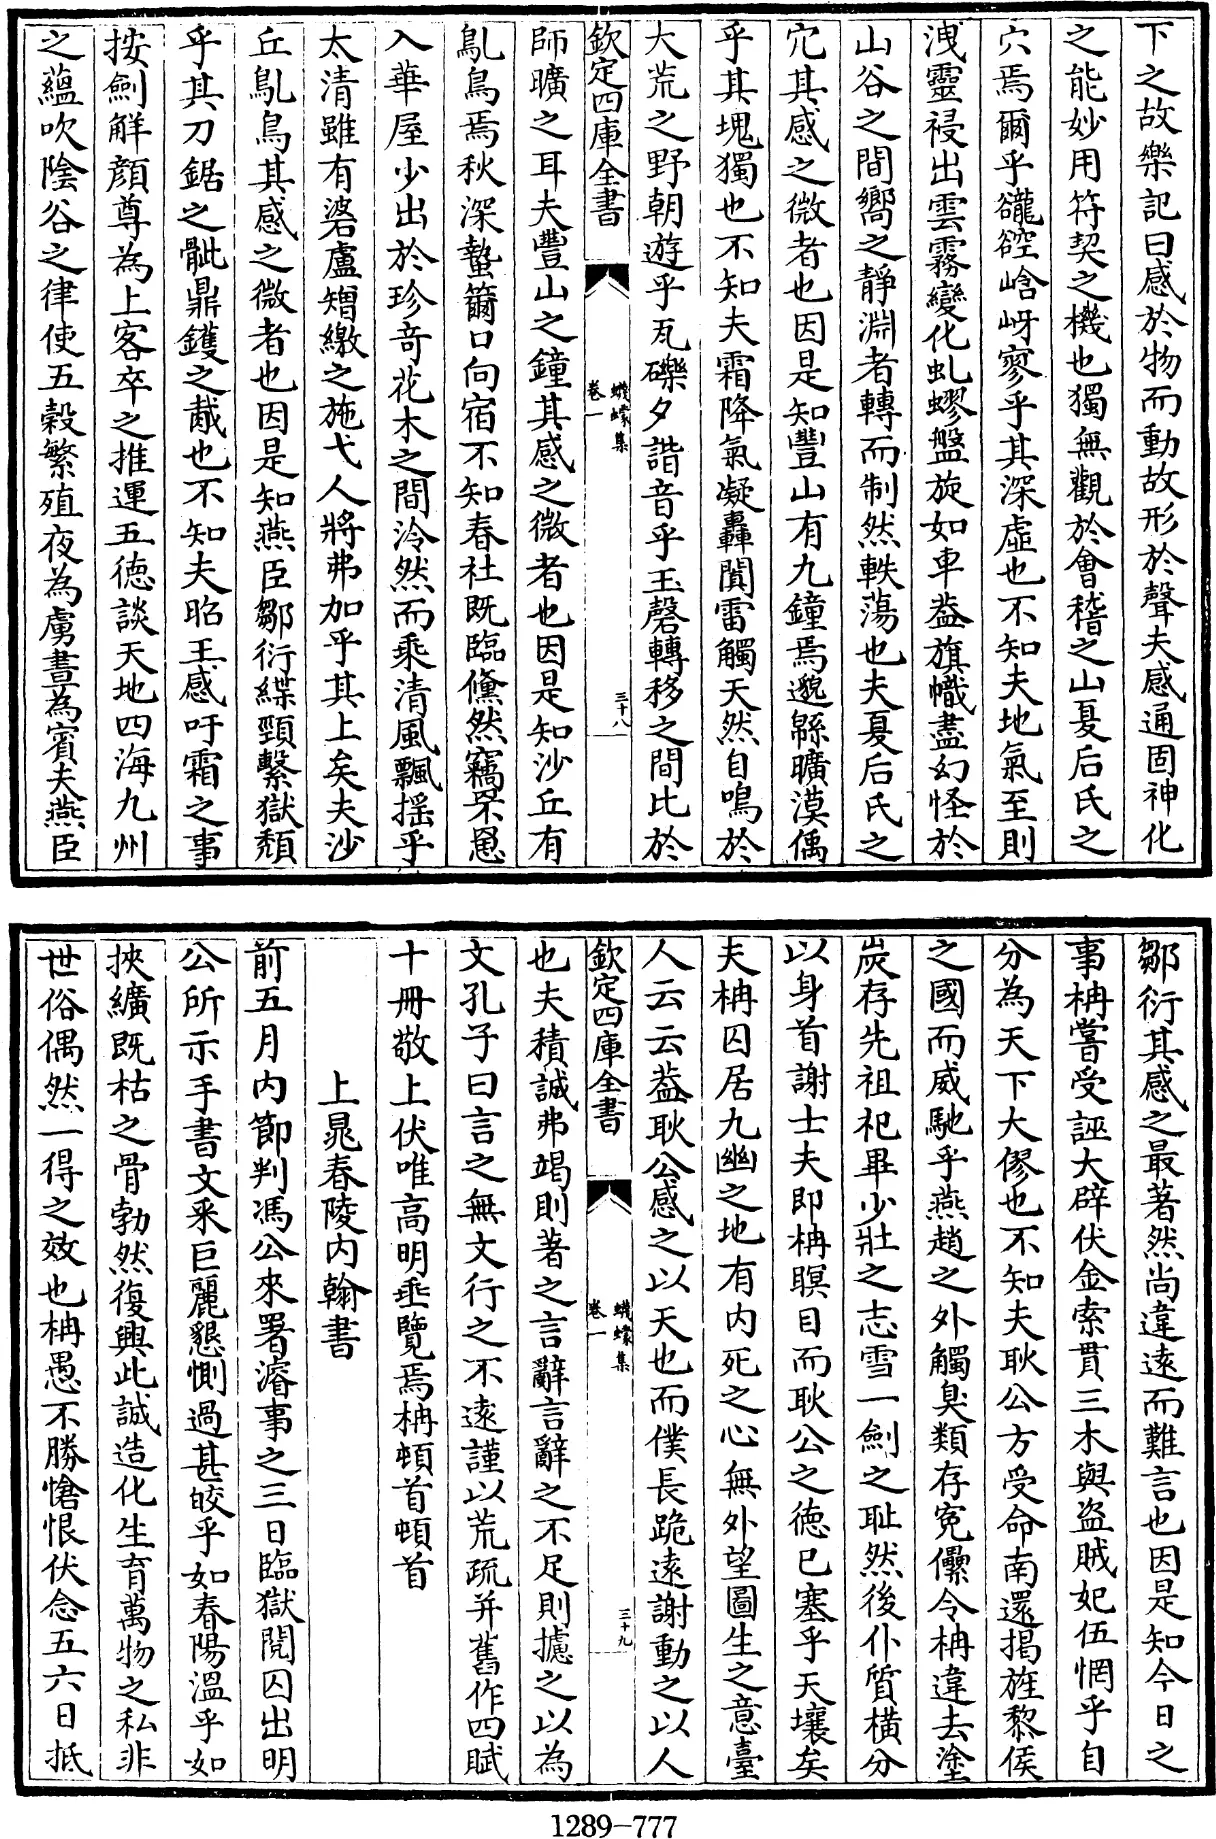 下之故樂記曰感於物而動故形於聲夫感通固神化
之能妙用符契之機也獨無觀於會稽之山夏后氏之
穴焉爾乎巃谾崆岈寥乎其深虛也不知夫地氣至則
洩靈祲出雲霧變化虬蟉盤旋如車葢旗幟盡幻怪於
山谷之間嚮之靜淵者轉而制然軼蕩也夫夏后氏之
穴其感之微者也因是知豐山有九鐘焉邈緜曠漠偶
乎其塊獨也不知夫霜降氣凝轟闐雷觸天然自鳴於
大荒之野朝遊乎瓦礫夕諧音乎玉磬轉移之間比於
欽定四庫全書
蠛蠓集
卷一
三十八
師曠之耳夫豐山之鐘其感之微者也因是知沙丘有
鳦鳥焉秋深蟄籥口向宿不知春社既臨儵然竊罘罳
入華屋少出於珍竒花木之間泠然而乘清風飄摇乎
太清雖有碆盧矰繳之施弋人將弗加乎其上矣夫沙
丘鳦鳥其感之微者也因是知燕臣鄒衍緤頸繫獄頽
乎其刀鋸之骴鼎鑊之胾也不知夫昭王感吁霜之事
按劍解顔尊為上客卒之推運五德談天地四海九州
之藴吹陰谷之律使五穀繁殖夜為虜晝為賓夫燕臣
鄒衍其感之最著然尚違遠而難言也因是知今日之
事柟嘗受誣大辟伏金索貫三木與盜賊妃伍惘乎自
分為天下大僇也不知夫耿公方受命南還揭旌黎侯
之國而威馳乎燕趙之外觸臭類存寃儽令柟違去塗
炭存先祖祀畢少壯之志雪一劍之恥然後仆質橫分
以身首謝士夫即柟瞑目而耿公之德已塞乎天壤矣
夫柟囚居九幽之地有内死之心無外望圖生之意臺
人云云葢耿公感之以天也而僕長跪遠謝動之以人
欽定四庫全書
蠛蠓集
卷一
三十九
也夫積誠弗竭則著之言辭言辭之不足則攄之以為
文孔子曰言之無文行之不遠謹以荒疏并舊作四賦
十冊敬上伏唯高明垂覽焉柟頓首頓首
上晁春陵内翰書
前五月内節判馮公來署濬事之三日臨獄閲囚出明
公所示手書文采巨麗懇惻過甚皎乎如春陽溫乎如
挾纊既枯之骨勃然復興此誠造化生育萬物之私非
世俗偶然一得之效也柟愚不勝愴恨伏念五六日抵
1289-777